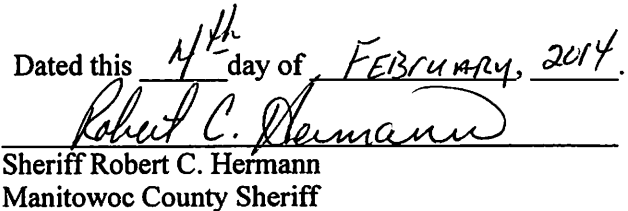 Dated this 4th day of, FEBruARy, 2014.
Robert C. Hermann
Sheriff Robert C. Hermann
Manitowoc County Sheriff